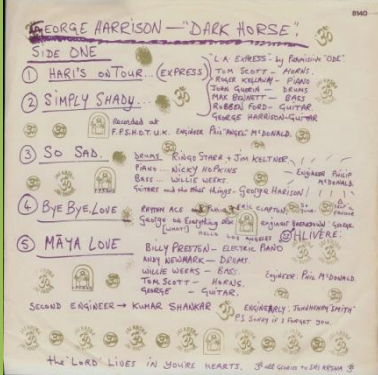 8140
GEORGE HARRISON — "DARK HORSE".
SIDE ONE
① HARI'S ON TOUR... (EXPRESS)
L.A. EXPRESS - by Permission "ODE"
TOM SCOTT - HORNS.
ROGER KELLAWAY - PIANO
JOHN GUERIN - DRUMS
MAX BENNETT - BASS
ROBBEN FORD - GUITAR.
GEORGE HARRISON - GUITAR
② SIMPLY SHADY...
Recorded at
F.P.S.H.O.T. U.K. ENGINEER PHIL "ANGEL" McDONALD.
③ SO SAD.
DRUMS RINGO STARR + JIM KELTNER.
PIANO... NICKY HOPKINS
BASS... WILLIE WEEKS.
GUITARS and the other things - George HARISON!
ENGINEER PHILIP McDONALD.
④ BYE BYE, LOVE
RHYTHM ACE ERIC CLAPTON
George on Everything else
HELLO LOS ANGELES
⑤ MĀYA LOVE
BILLY PRESTON - ELECTRIC PIANO
ANDY NEWMARK - DRUMS.
WILLIE WEEKS - BASS.
TOM SCOTT - HORNS.
GEORGE - GUITAR.
ENGINEER: PHIL McDONALD.
SECOND ENGINEER → KUMAR SHANKAR
P.S. SORRY if I FORGET YOU.
the 'LORD' LIVES IN YOU'RE HEARTS.
all Glories to SRI KRSNA